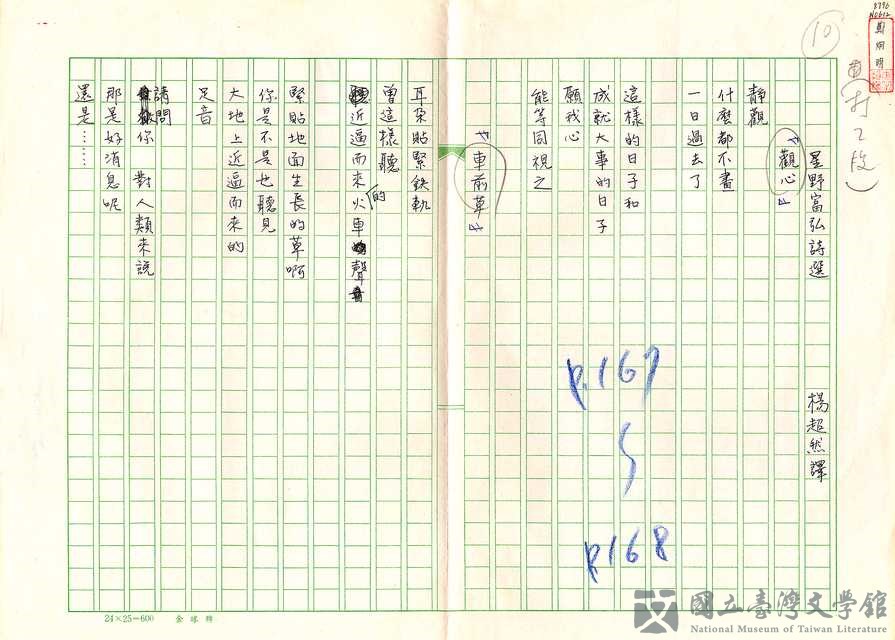 8796
N0612
10
星野富弘詩選
楊超然譯
觀心
靜觀
什麼都不畫
一日過去了
這樣的日子和
成就大事的日子
願我心
能等同視之
車前草
耳朵貼緊鉄軌
曾這樣聽
近逼而來的火車聲
緊貼地面生長的草啊
你是不是也聽見
大地上近逼而來的
足音
請問
你 對人類來說
那是好消息呢
還是……
P.167
P.168
24×25=600 金球牌
國立臺灣文學館
National Museum of Taiwan Literature